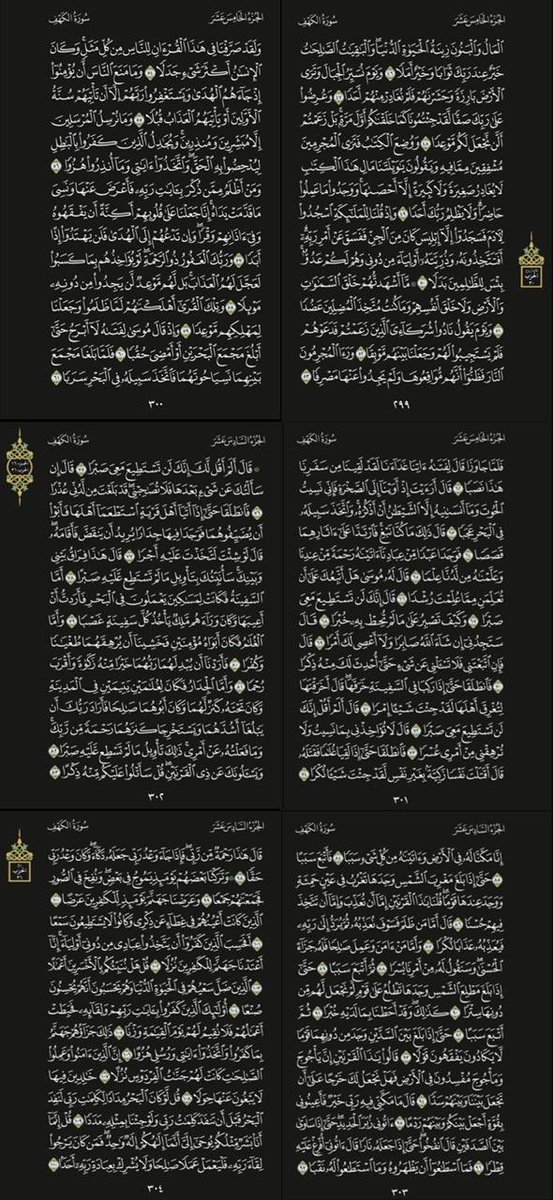 الجزء الخامس عشر
سورة الكهف
المال والبنون زينة الحيوة الدنيا والبقيت الصلحت
خير عند ربك ثوابا وخير أملا ٤٦ ويوم نسير الجبال وترى
الأرض بارزة وحشرنهم فلم نغادر منهم أحدا ٤٧ وعرضوا
على ربك صفا لقد جئتمونا كما خلقنكم أول مرة بل زعمتم
ألن نجعل لكم موعدا ٤٨ ووضع الكتب فترى المجرمين
مشفقين مما فيه ويقولون يويلتنا مال هذا الكتب
لا يغادر صغيرة ولا كبيرة إلا أحصىها ووجدوا ما عملوا
حاضرا ولا يظلم ربك أحدا ٤٩ وإذ قلنا للملئكة اسجدوا
لأدم فسجدوا إلا إبليس كان من الجن ففسق عن أمر ربه
أفتتخذونه وذريته أولياء من دوني وهم لكم عدو
بئس للظلمين بدلا ٥٠ ما أشهدتهم خلق السموت
والأرض ولا خلق أنفسهم وما كنت متخذ المضلين عضدا
٥١ ويوم يقول نادوا شركاءي الذين زعمتم فدعوهم
فلم يستجيبوا لهم وجعلنا بينهم موبقا ٥٢ ورءا المجرمون
النار فظنوا أنهم مواقعوها ولم يجدوا عنها مصرفا ٥٣
٢٩٩
الجزء الخامس عشر
سورة الكهف
ولقد صرفنا في هذا القرءان للناس من كل مثل وكان
الإنسن أكثر شيء جدلا ٥٤ وما منع الناس أن يؤمنوا
إذ جاءهم الهدى ويستغفروا ربهم إلا أن تأتيهم سنة
الأولين أو يأتيهم العذاب قبلا ٥٥ وما نرسل المرسلين
إلا مبشرين ومنذرين ويجدل الذين كفروا بالبطل
ليدحضوا به الحق واتخذوا ءايتي وما أنذروا هزوا ٥٦
ومن أظلم ممن ذكر بءايت ربه فأعرض عنها ونسي
ما قدمت يداه إنا جعلنا على قلوبهم أكنة أن يفقهوه
وفي ءاذانهم وقرا وإن تدعهم إلى الهدى فلن يهتدوا إذا
أبدا ٥٧ وربك الغفور ذو الرحمة لو يؤاخذهم بما كسبوا
لعجل لهم العذاب بل لهم موعد لن يجدوا من دونه
موئلا ٥٨ وتلك القرى أهلكنهم لما ظلموا وجعلنا
لمهلكهم موعدا ٥٩ وإذ قال موسى لفتىه لا أبرح حتى
أبلغ مجمع البحرين أو أمضي حقبا ٦٠ فلما بلغا مجمع
بينهما نسيا حوتهما فاتخذ سبيله في البحر سربا ٦١
٣٠٠
الجزء الخامس عشر
سورة الكهف
فلما جاوزا قال لفتىه ءاتنا غداءنا لقد لقينا من سفرنا
هذا نصبا ٦٢ قال أرءيت إذ أوينا إلى الصخرة فإني نسيت
الحوت وما أنسىنيه إلا الشيطن أن أذكره واتخذ سبيله
في البحر عجبا ٦٣ قال ذلك ما كنا نبغ فارتدا على ءاثارهما
قصصا ٦٤ فوجدا عبدا من عبادنا ءاتينه رحمة من عندنا
وعلمنه من لدنا علما ٦٥ قال له موسى هل أتبعك على أن
تعلمن مما علمت رشدا ٦٦ قال إنك لن تستطيع معي
صبرا ٦٧ وكيف تصبر على ما لم تحط به خبرا ٦٨ قال
ستجدني إن شاء الله صابرا ولا أعصي لك أمرا ٦٩ قال
فإن اتبعتني فلا تسءلني عن شيء حتى أحدث لك منه ذكرا
٧٠ فانطلقا حتى إذا ركبا في السفينة خرقها قال أخرقتها
لتغرق أهلها لقد جئت شيءا إمرا ٧١ قال ألم أقل إنك
لن تستطيع معي صبرا ٧٢ قال لا تؤاخذني بما نسيت ولا
ترهقني من أمري عسرا ٧٣ فانطلقا حتى إذا لقيا غلما فقتله
قال أقتلت نفسا زكية بغير نفس لقد جئت شيءا نكرا ٧٤
٣٠١
الجزء السادس عشر
سورة الكهف
قال ألم أقل لك إنك لن تستطيع معي صبرا ٧٥ قال إن
سألتك عن شيء بعدها فلا تصحبني قد بلغت من لدني عذرا
٧٦ فانطلقا حتى إذا أتيا أهل قرية استطعما أهلها فأبوا
أن يضيفوهما فوجدا فيها جدارا يريد أن ينقض فأقامه
قال لو شئت لتخذت عليه أجرا ٧٧ قال هذا فراق بيني
وبينك سأنبئك بتأويل ما لم تستطع عليه صبرا ٧٨ أما
السفينة فكانت لمسكين يعملون في البحر فأردت أن
أعيبها وكان وراءهم ملك يأخذ كل سفينة غصبا ٧٩ وأما
الغلم فكان أبواه مؤمنين فخشينا أن يرهقهما طغينا
وكفرا ٨٠ فأردنا أن يبدلهما ربهما خيرا منه زكوة وأقرب
رحما ٨١ وأما الجدار فكان لغلمين يتيمين في المدينة
وكان تحته كنز لهما وكان أبوهما صلحا فأراد ربك أن
يبلغا أشدهما ويستخرجا كنزهما رحمة من ربك
وما فعلته عن أمري ذلك تأويل ما لم تسطع عليه صبرا ٨٢
ويسءلونك عن ذي القرنين قل سأتلوا عليكم منه ذكرا ٨٣
٣٠٢
الجزء السادس عشر
سورة الكهف
إنا مكنا له في الأرض وءاتينه من كل شيء سببا ٨٤ فأتبع سببا
٨٥ حتى إذا بلغ مغرب الشمس وجدها تغرب في عين حمئة
ووجد عندها قوما قلنا يذا القرنين إما أن تعذب وإما أن تتخذ
فيهم حسنا ٨٦ قال أما من ظلم فسوف نعذبه ثم يرد إلى ربه
فيعذبه عذابا نكرا ٨٧ وأما من ءامن وعمل صلحا فله جزاء
الحسنى وسنقول له من أمرنا يسرا ٨٨ ثم أتبع سببا ٨٩ حتى
إذا بلغ مطلع الشمس وجدها تطلع على قوم لم نجعل لهم من
دونها سترا ٩٠ كذلك وقد أحطنا بما لديه خبرا ٩١ ثم
أتبع سببا ٩٢ حتى إذا بلغ بين السدين وجد من دونهما قوما
لا يكادون يفقهون قولا ٩٣ قالوا يذا القرنين إن يأجوج
ومأجوج مفسدون في الأرض فهل نجعل لك خرجا على أن
تجعل بيننا وبينهم سدا ٩٤ قال ما مكني فيه ربي خير فأعينوني
بقوة أجعل بينكم وبينهم ردما ٩٥ ءاتوني زبر الحديد حتى إذا ساوى
بين الصدفين قال انفخوا حتى إذا جعله نارا قال ءاتوني أفرغ عليه
قطرا ٩٦ فما اسطعوا أن يظهروه وما استطعوا له نقبا ٩٧
٣٠٣
الجزء السادس عشر
سورة الكهف
قال هذا رحمة من ربي فإذا جاء وعد ربي جعله دكاء وكان وعد ربي
حقا ٩٨ وتركنا بعضهم يومئذ يموج في بعض ونفخ في الصور
فجمعنهم جمعا ٩٩ وعرضنا جهنم يومئذ للكفرين عرضا ١٠٠
الذين كانت أعينهم في غطاء عن ذكري وكانوا لا يستطيعون سمعا
١٠١ أفحسب الذين كفروا أن يتخذوا عبادي من دوني أولياء إنا
أعتدنا جهنم للكفرين نزلا ١٠٢ قل هل ننبئكم بالأخسرين أعملا
١٠٣ الذين ضل سعيهم في الحيوة الدنيا وهم يحسبون أنهم يحسنون
صنعا ١٠٤ أولئك الذين كفروا بءايت ربهم ولقائه فحبطت
أعملهم فلا نقيم لهم يوم القيمة وزنا ١٠٥ ذلك جزاؤهم جهنم
بما كفروا واتخذوا ءايتي ورسلي هزوا ١٠٦ إن الذين ءامنوا وعملوا
الصلحت كانت لهم جنت الفردوس نزلا ١٠٧ خلدين فيها
لا يبغون عنها حولا ١٠٨ قل لو كان البحر مدادا لكلمت ربي لنفد
البحر قبل أن تنفد كلمت ربي ولو جئنا بمثله مددا ١٠٩ قل إنما
أنا بشر مثلكم يوحى إلي أنما إلهكم إله وحد فمن كان يرجوا
لقاء ربه فليعمل عملا صلحا ولا يشرك بعبادة ربه أحدا ١١٠
٣٠٤